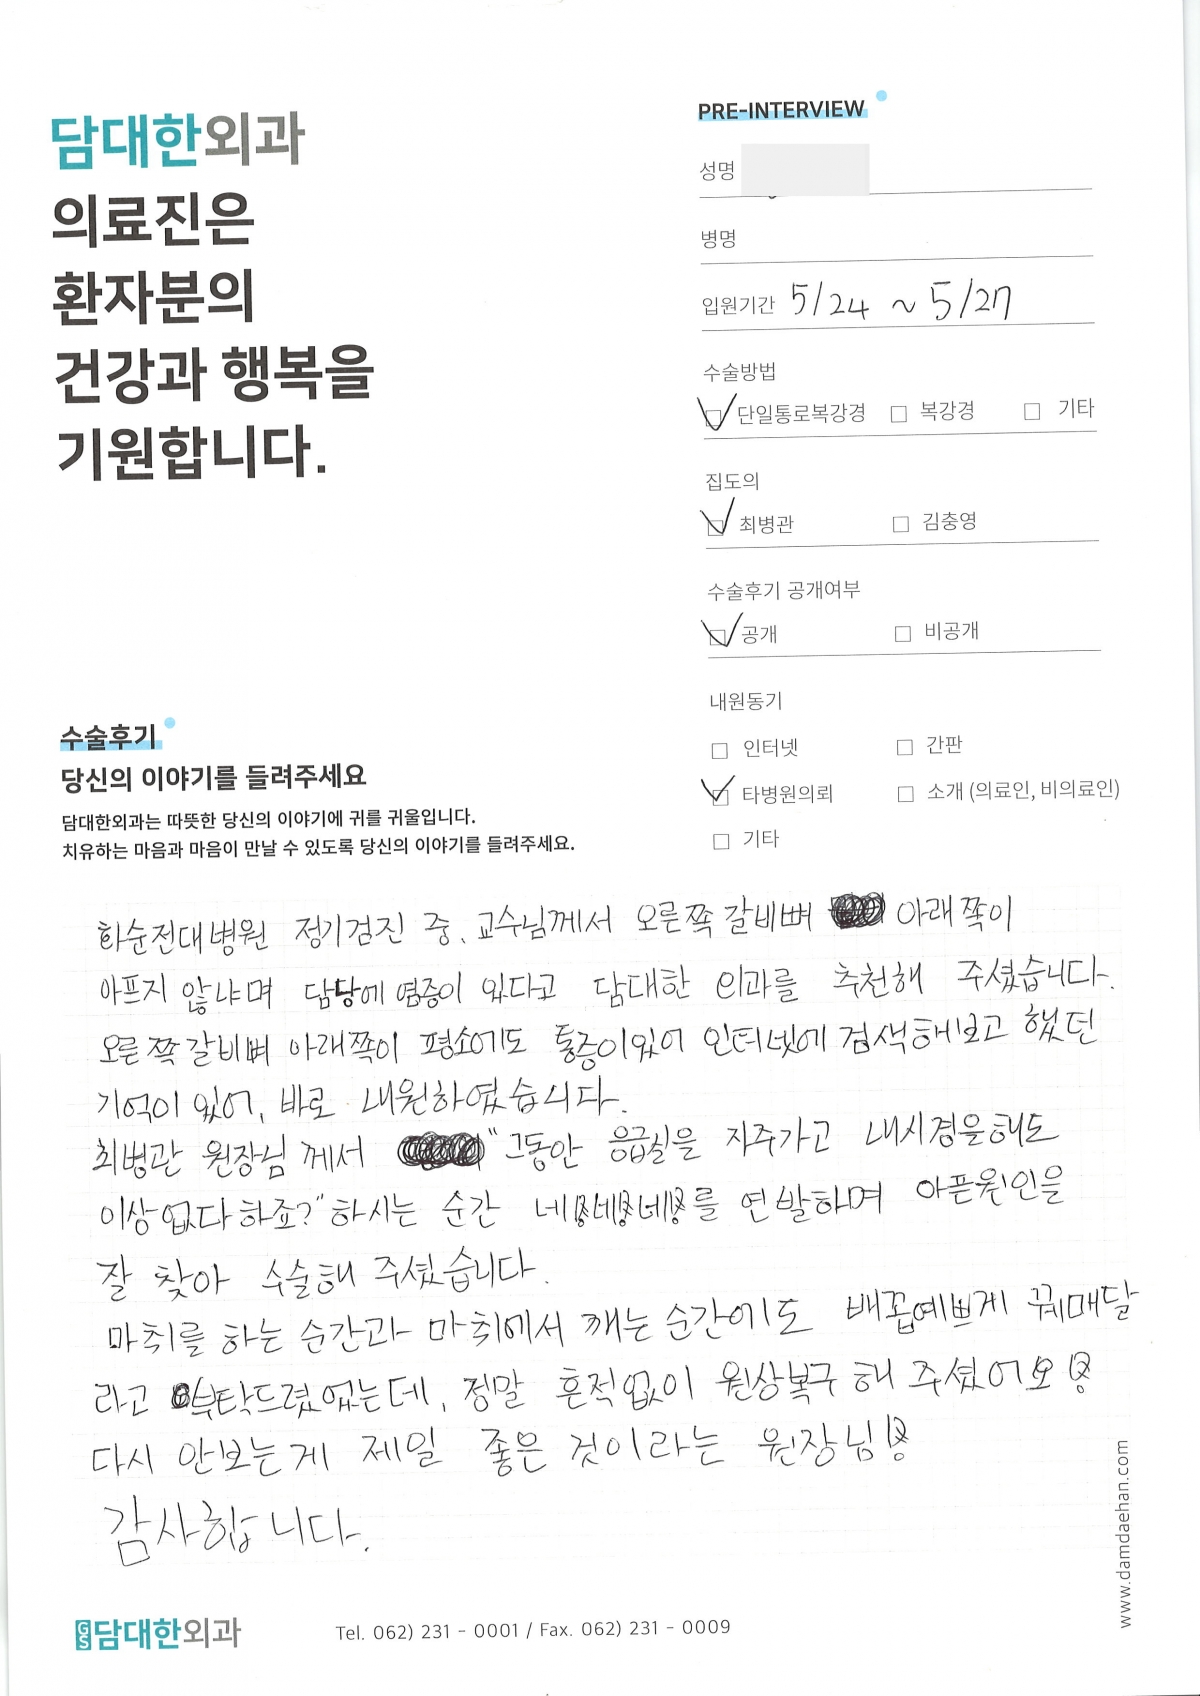 담대한외과
의료진은
환자분의
건강과 행복을
기원합니다.
PRE-INTERVIEW
성명
병명
입원기간 5/24 ~ 5/27
수술방법
단일통로복강경 복강경 기타
집도의
최병관 김충영
수술후기 공개여부
공개 비공개
내원동기
인터넷 간판
타병원의뢰 소개 (의료인, 비의료인)
기타
수술후기
당신의 이야기를 들려주세요
담대한외과는 따뜻한 당신의 이야기에 귀를 귀울입니다.
치유하는 마음과 마음이 만날 수 있도록 당신의 이야기를 들려주세요.
화순전대병원 정기검진 중, 교수님께서 오른쪽 갈비뼈 아래쪽이
아프지 않냐며 담낭에 염증이 있다고 담대한 외과를 추천해 주셨습니다.
오른쪽 갈비뼈 아래쪽이 평소에도 통증이있어 인터넷에 검색해보고 했던
기억이 있어, 바로 내원하였습니다.
최병관 원장님께서 "그동안 응급실을 자주가고 내시경을해도
이상없다하죠?" 하시는 순간 네!네!네!를 연발하며 아픈원인을
잘 찾아 수술해 주셨습니다.
마취를 하는 순간과 마취에서 깨는 순간에도 배꼽예쁘게 꿰매달
라고 부탁드렸었는데, 정말 흔적없이 원상복구 해 주셨어요!
다시 안보는게 제일 좋은 것이라는 원장님!
감사합니다.
www.damdaehan.com
GS담대한외과
Tel. 062) 231 - 0001 / Fax. 062) 231 - 0009